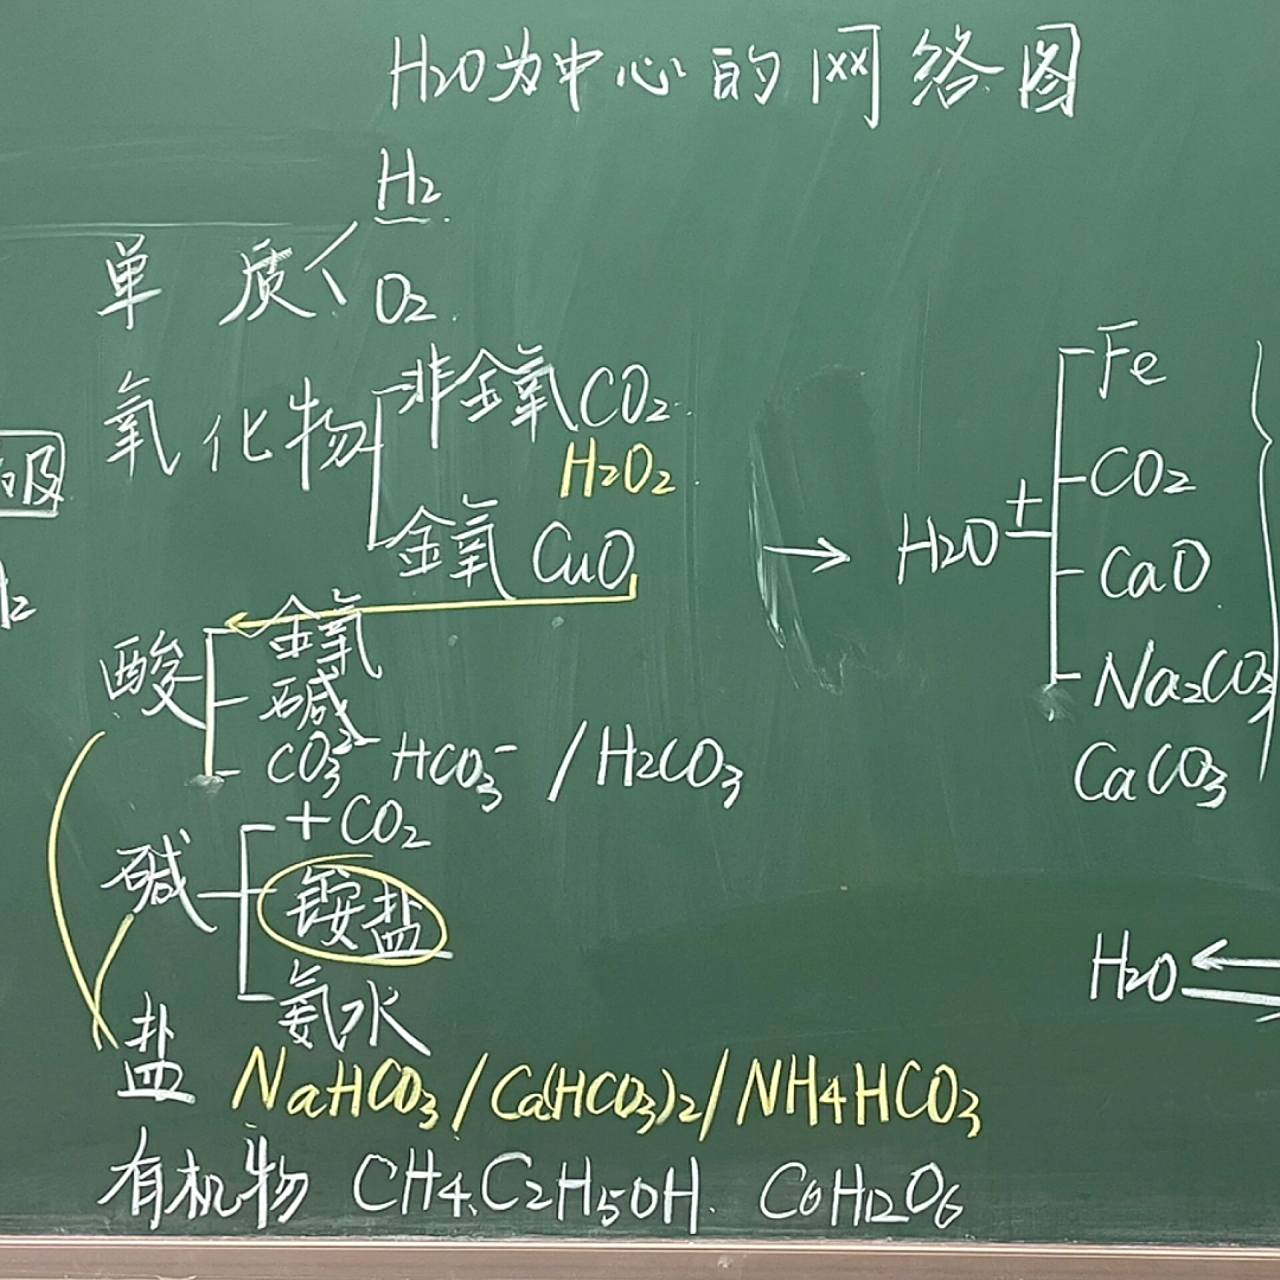 H2O为中心的网络图
H2
单质
O2
氧化物
非金氧 CO2
H2O2
金氧 CuO
酸
金氧
碱
CO3²⁻ HCO3⁻ / H2CO3
碱
+CO2
铵盐
氨水
盐 NaHCO3 / Ca(HCO3)2 / NH4HCO3
有机物 CH4、C2H5OH、C6H12O6
→ H2O +
Fe
CO2
CaO
Na2CO3
CaCO3
H2O
吸